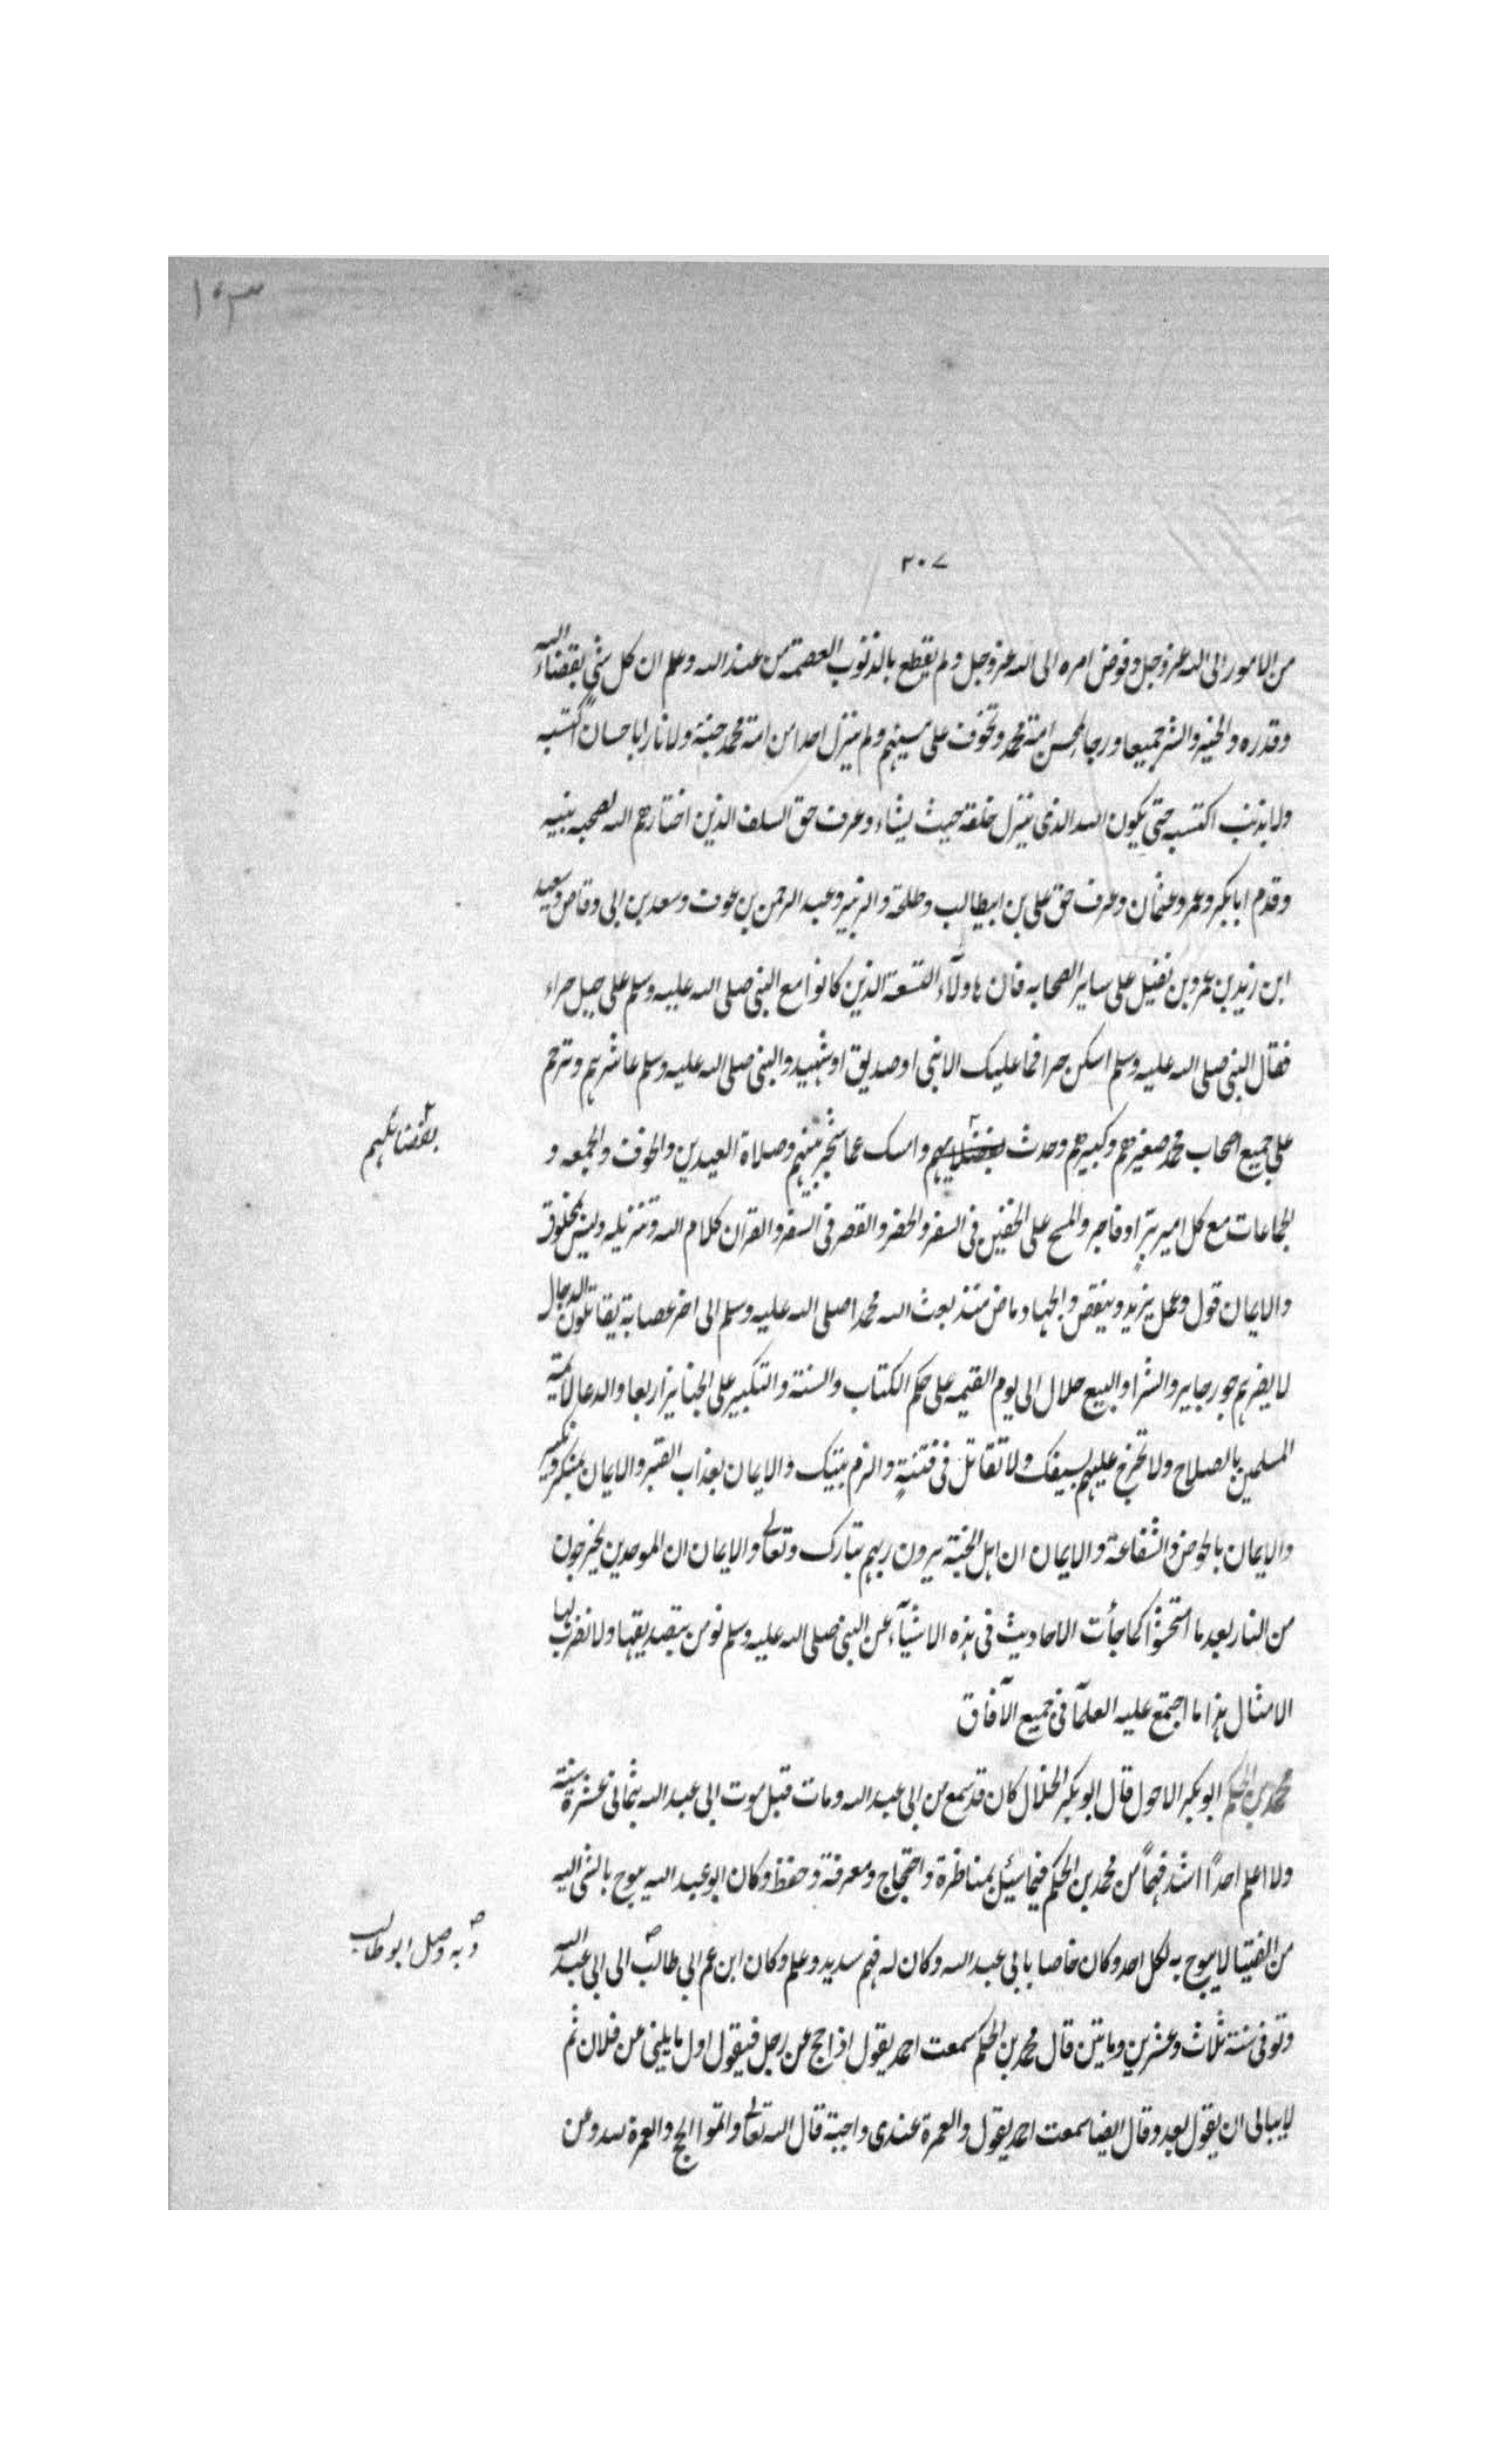 ١٠٣
٢٠٧
من الامور الى الله عز وجل وفوض امره الى الله عز وجل ولم يقطع بالذنوب العصمة من عند الله وعلم ان كل شي بقضاء الله
وقدره والخير والشر جميعا ورجا لمحسن امة محمد وتخوف على مسيئهم ولم ينزل احدا من امة محمد جنة ولا نارا باحسان اكتسبه
ولا بذنب اكتسبه حتى يكون الله الذى ينزل خلقه حيث يشاء وعرف حق السلف الذين اختارهم الله لصحبة نبيه
وقدم ابابكر وعمر وعثمان وعرف حق على بن ابيطالب وطلحة والزبير وعبد الرحمن بن عوف وسعد بن ابى وقاص وسعيد
ابن زيد بن عمرو بن نفيل على ساير الصحابه فان هاولآء التسعة الذين كانوا مع النبى صلى الله عليه وسلم على جبل حراء
فقال النبى صلى الله عليه وسلم اسكن حرا فما عليك الا نبى او صديق او شهيد والنبى صلى الله عليه وسلم عاشرهم وترحم
على جميع اصحاب محمد صغيرهم وكبيرهم وحدث بفضلايهم وامسك عما شجر بينهم وصلاة العيدين والخوف والجمعه و
بفضائلهم
الجماعات مع كل امير برٍّ او فاجر والمسح على الخفين فى السفر والحضر والقصر فى السفر والقران كلام الله وتنزيله وليس بمخلوق
والايمان قول وعمل يزيد وينقص والجهاد ماض منذ بعث الله محمدا صلى الله عليه وسلم الى اخر عصابة يقاتلون الدجال
لا يضرهم جور جاير والشرا والبيع حلال الى يوم القيمه على حكم الكتاب والسنة والتكبير على الجنايز اربعا والدعا لائمة
المسلمين بالصلاح ولا تخرج عليهم بسيفك ولا تقاتل فى فتنةٍ والزم بيتك والايمان بعذاب القبر والايمان بمنكر ونكير
والايمان بالحوض والشفاعة والايمان ان اهل الجنة يرون ربهم تبارك وتعالى والايمان ان الموحدين يخرجون
من النار بعد ما امتحشوا كما جأت الاحاديث فى هذه الاشيآء عن النبى صلى الله عليه وسلم نومن بتصديقها ولا نضرب لها
الامثال هذا ما اجتمع عليه العلمآ فى جميع الآفاق
محمد بن الحكم ابو بكر الاحول قال ابو بكر الخلال كان قد سمع من ابى عبد الله ومات قبل موت ابى عبد الله بثمانى عشرة سنة
ولا اعلم احدًا اشد فهمًا من محمد بن الحكم فيما سئل بمناظرة واحتجاج ومعرفة وحفظ وكان ابو عبد الله يبوح بالشى اليه
من الفتيا لا يبوح به لكل احد وكان خاصا بابى عبد الله وكان له فهم سديد وعلم وكان ابن عم ابى طالب الى ابى عبد الله
وبه وصل ابو طالب
وتوفى سنة ثلاث وعشرين وماتين قال محمد بن الحكم سمعت احمد يقول اذا حج عن رجل فيقول اول ما يلبى عن فلان ثم
لا يبالى ان يقول بعد وقال ايضا سمعت احمد يقول والعمرة عندى واجبة قال الله تعالى واتموا الحج والعمرة لله ومن